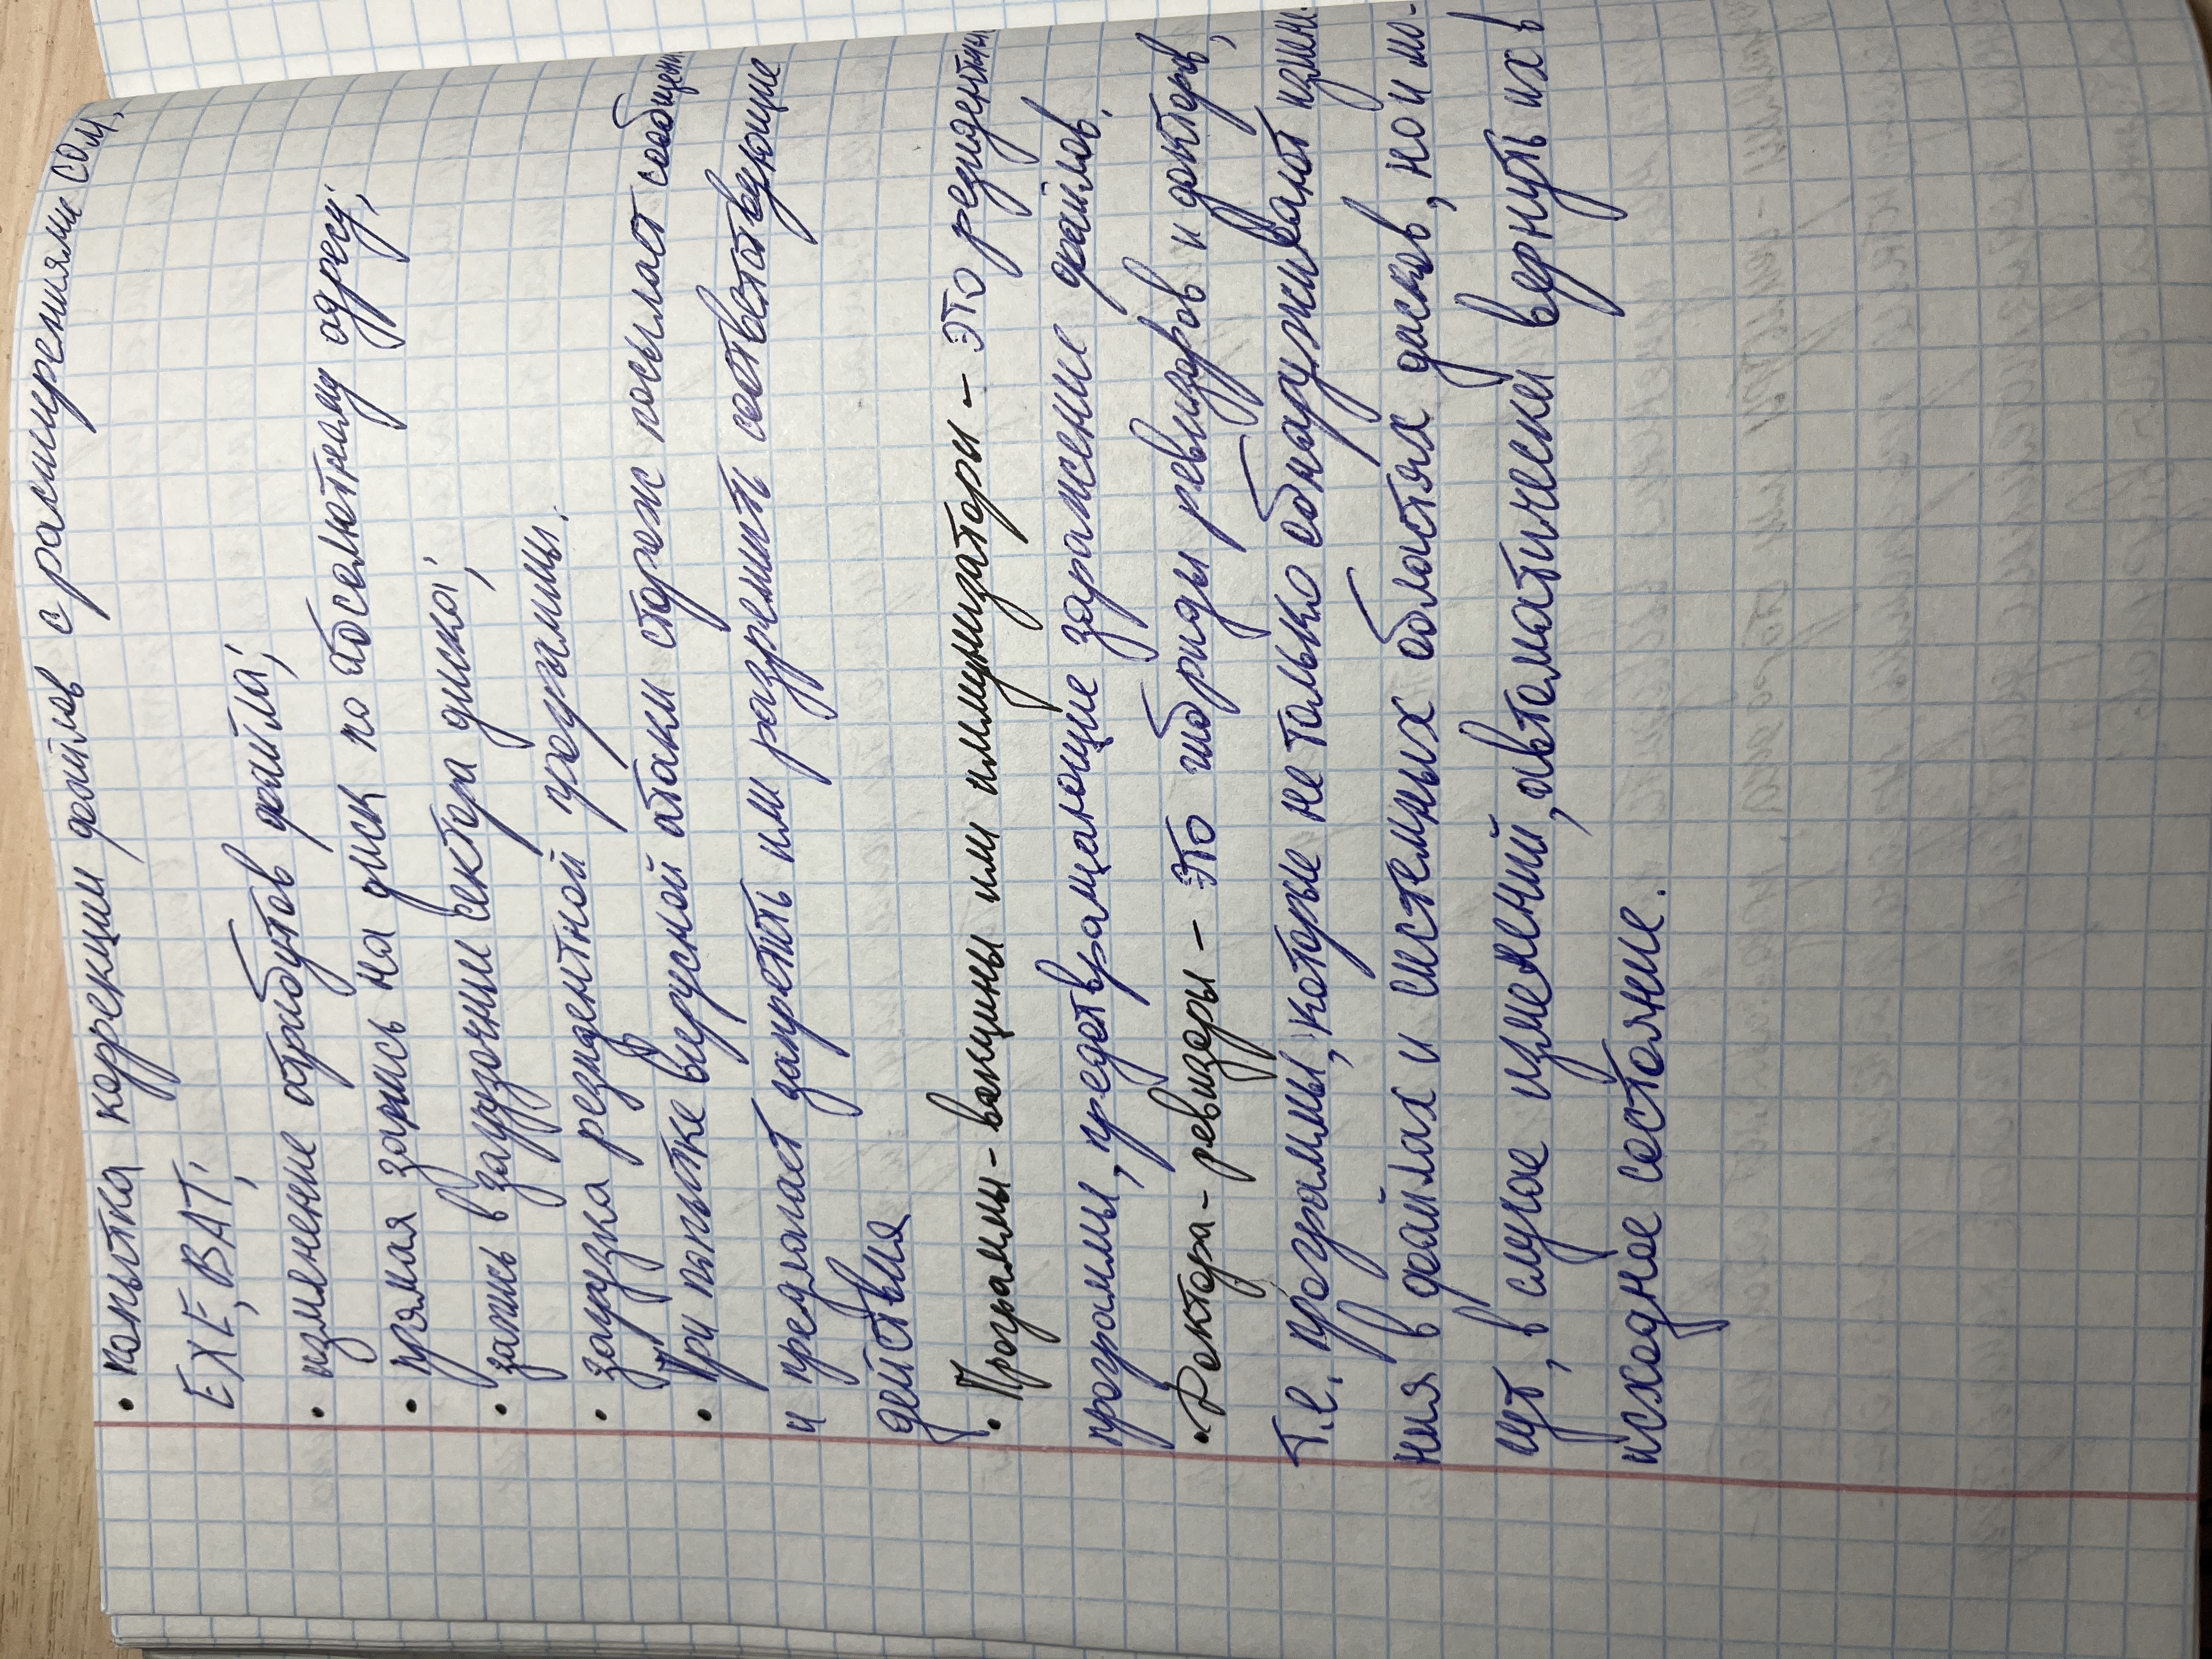 • попытка коррекции файлов с расширениями COM,
EXE, BAT;
• изменение атрибутов файла;
• прямая запись на диск по абсолютному адресу;
• запись в загрузочный сектора диска;
• загрузка резидентной программы.
• При попытке вирусной атаки сторож посылает сообщени
и предлагает запретить или разрешить соответствующие
действия
• Программы-вакцины или иммунизаторы – это резидентные
программы, предотвращающие заражение файлов.
• Доктора-ревизоры – это гибриды ревизоров и докторов,
т.е. программы, которые не только обнаруживают измене-
ния в файлах и системных областях дисков, но и мо-
гут, в случае изменений, автоматически вернуть их в
исходное состояние.